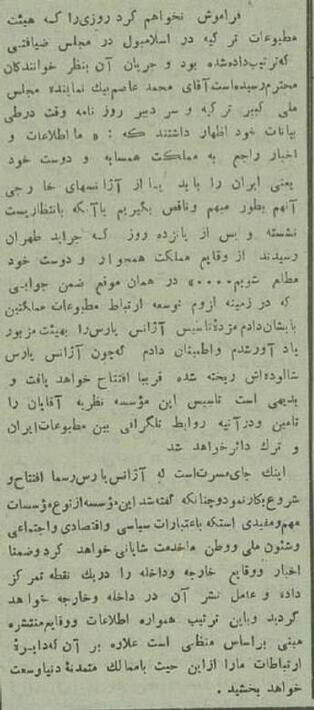 فراموش نخواهم کرد روزی را که هیئت
مطبوعات ترکیه در اسلامبول در مجلس ضیافتی
که ترتیب داده شده بود و جریان آن بنظر خوانندگان
محترم رسیده است آقای محمد عاصم بیك نماینده مجلس
ملی کبیر ترکیه و سر دبیر روز نامه وقت در طی
بیانات خود اظهار داشتند که : « ما اطلاعات و
اخبار راجع به مملکت همسایه و دوست خود
یعنی ایران را باید یا از آژانسهای خارجی
آنهم بطور مبهم و ناقص بگیریم یا آنکه بانتظار پست
نشسته و پس از پانزده روز که جراید طهران
رسیدند از وقایع مملکت همجوار و دوست خود
مطلع شویم .....» در همان موقع ضمن جوابی
که در زمینه لزوم توسعه ارتباط مطبوعات مملکتین
بایشان دادم مژده تأسیس آژانس پارس را بهیئت مزبور
یاد آور شدم و اطمینان دادم که چون آژانس پارس
شالوده اش ریخته شده قریبا افتتاح خواهد یافت و
بدیهی است تاسیس این مؤسسه نظریه آقایان را
تامین و در آتیه روابط تلگرافی بین مطبوعات ایران
و ترك دائر خواهد شد
اینك جای مسرت است که آژانس پارس رسما افتتاح و
شروع بکار نمود و چنانکه گفته شد این مؤسسه از نوع مؤسسات
مهم و مفیدی استکه باعتبارات سیاسی و اقتصادی و اجتماعی
و شئون ملی و وطن ما خدمت شایانی خواهد کرد و ضمنا
اخبار و وقایع خارجه و داخله را در یك نقطه تمرکز
داده و عامل نشر آن در داخله و خارجه خواهد
گردید و باین ترتیب همواره اطلاعات و وقایع منتشره
مبنی بر اساس منظمی است علاوه بر آن که دایرهٔ
ارتباطات ما را از این حیث با ممالك متمدنهٔ دنیا وسعت
خواهد بخشید .